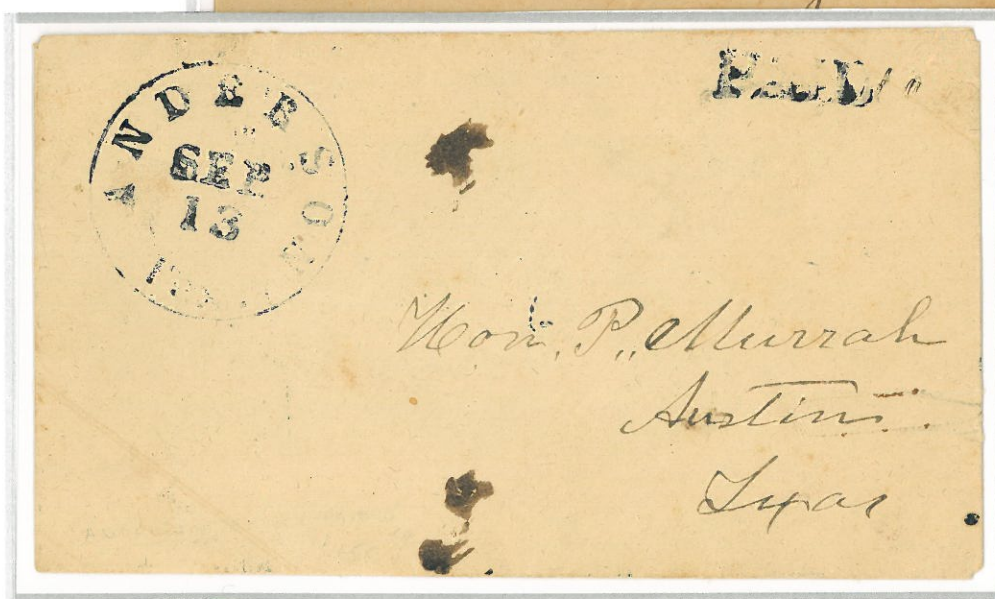 ANDERSON
SEP
13
PAID
Hon. P. Murrah
Austin
Texas